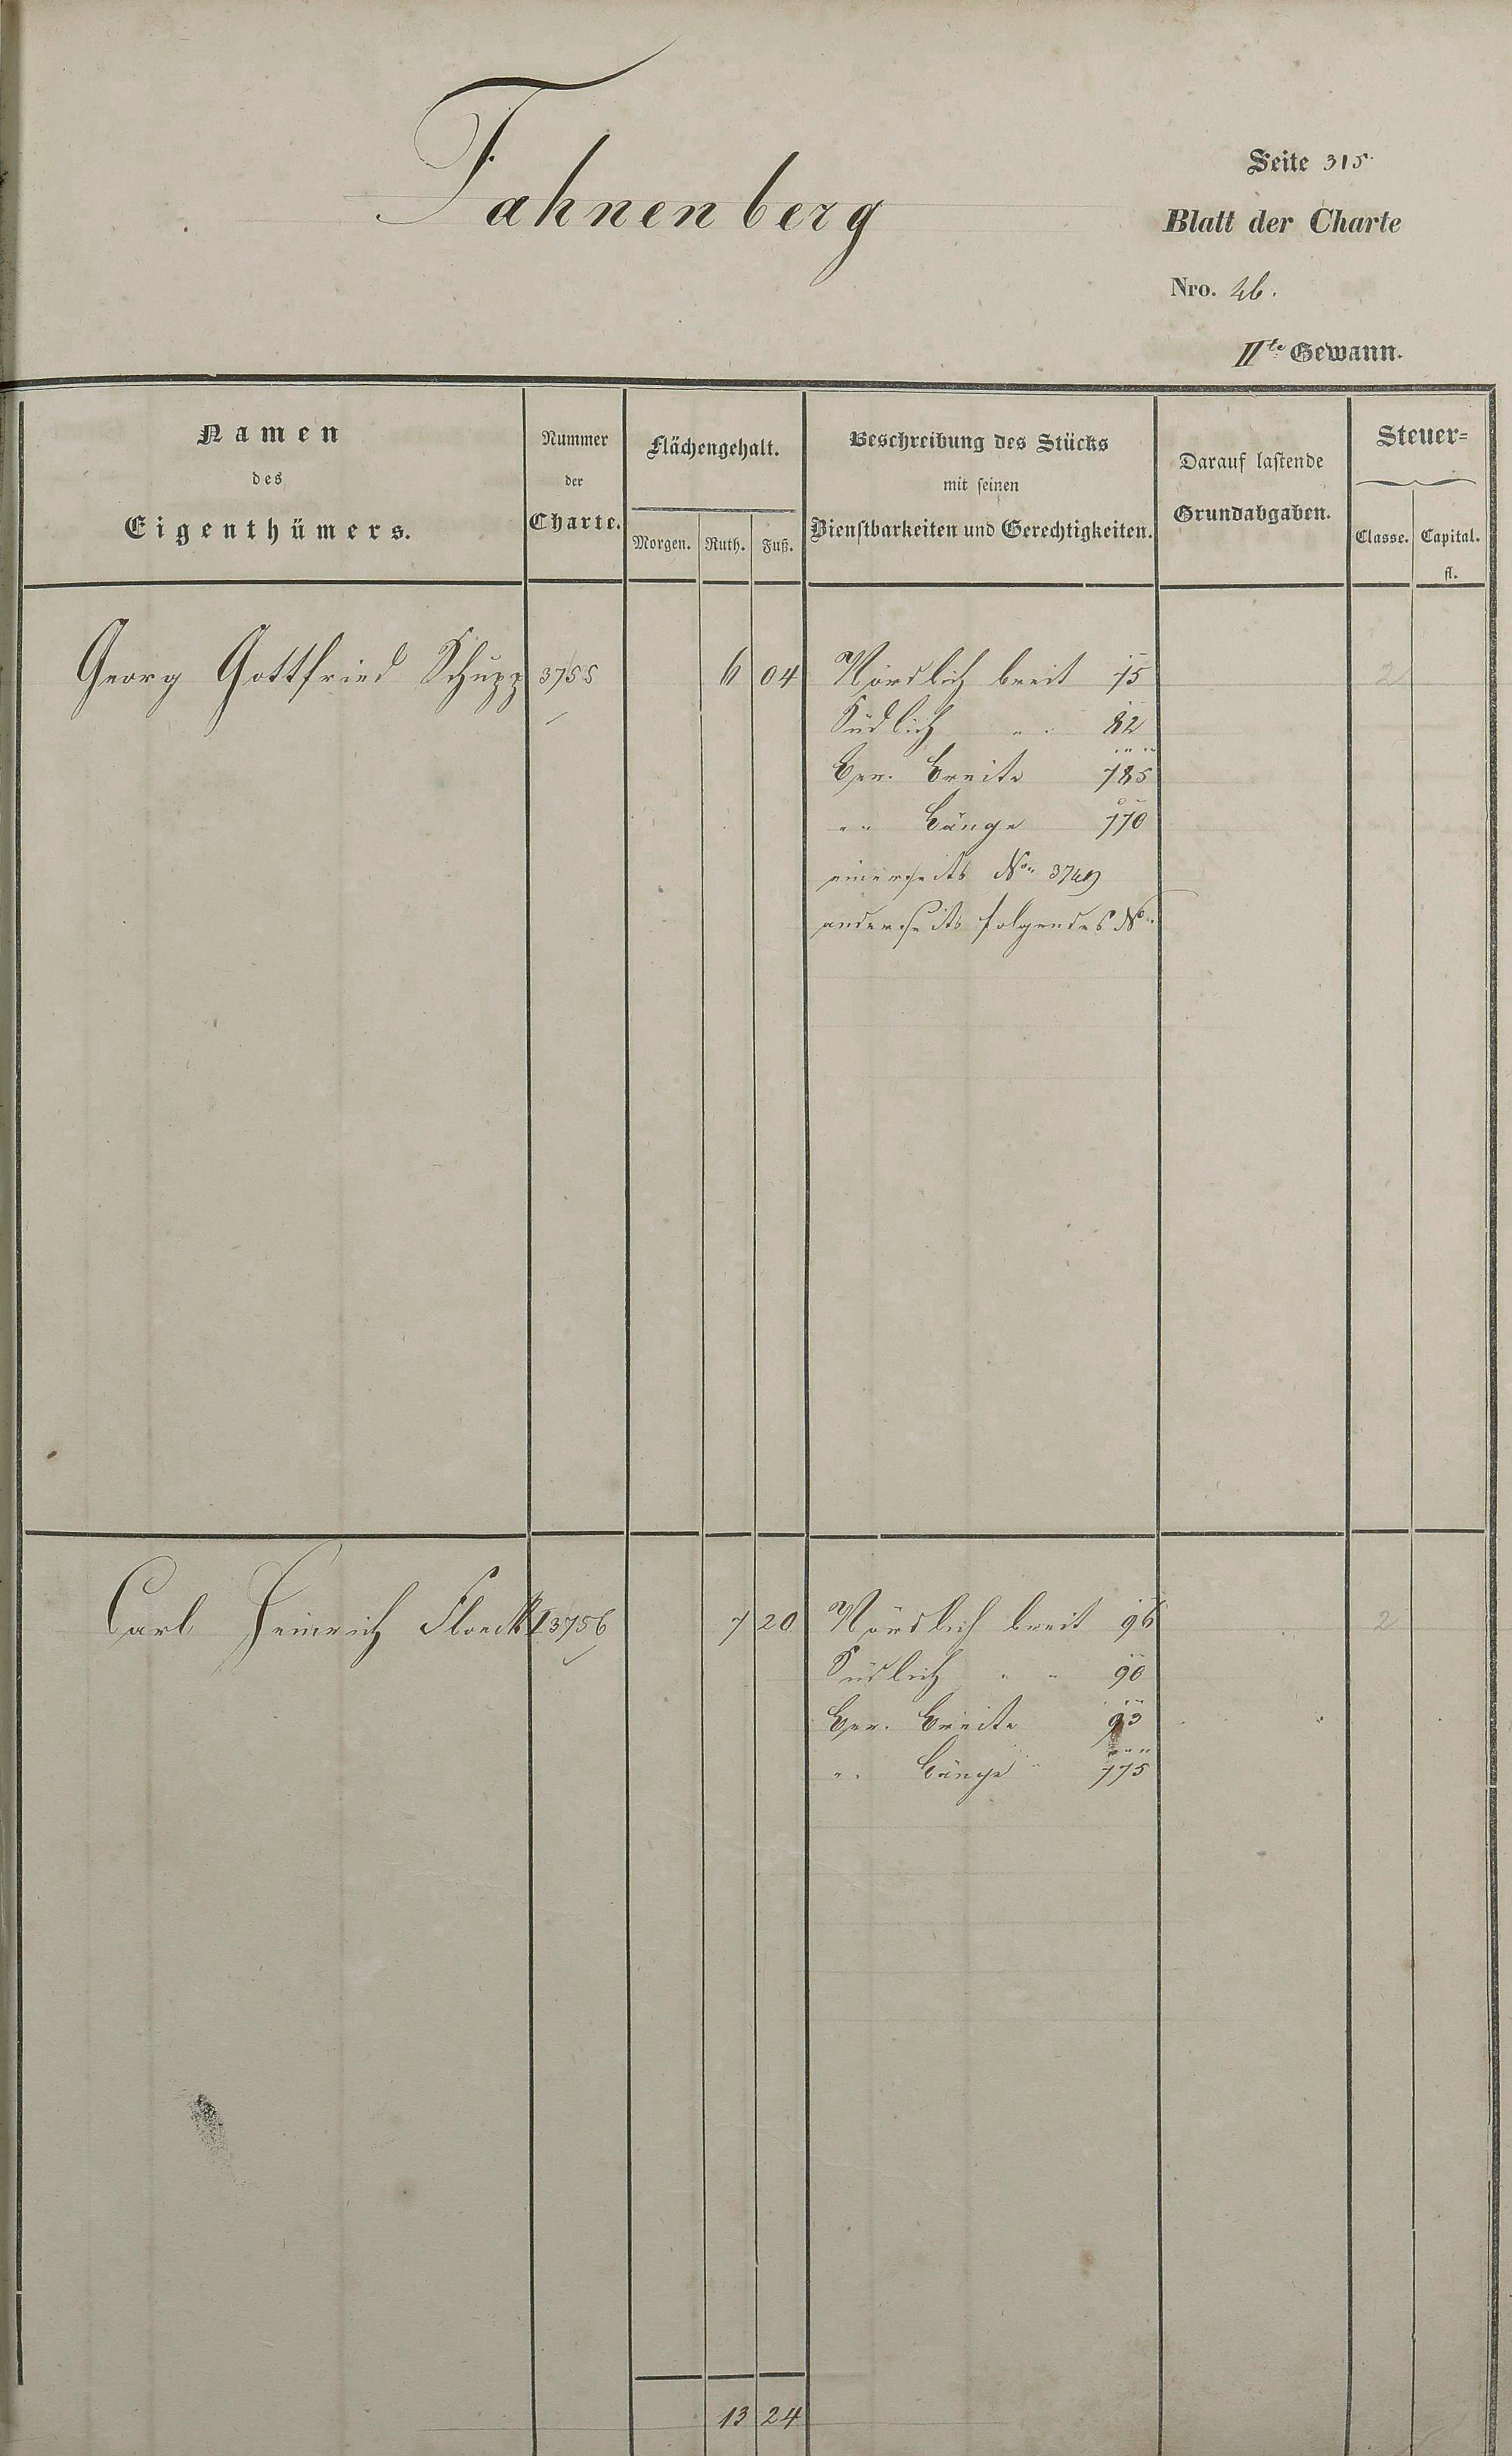 Fahnenberg
Seite 315
Blatt der Charte
Nro. 26.
IIte Gewann.
Namen des Eigenthümers.
Nummer der Charte.
Flächengehalt.
Morgen. Ruth. Fuß.
Beschreibung des Stücks mit seinen Dienstbarkeiten und Gerechtigkeiten.
Darauf lastende Grundabgaben.
Steuer=
Classe. Capital. fl.
Georg Gottfried Schupp 3755 6 04 Nördlich breit 75 2
Südlich " " 82
Ger. Breite 785
" " Länge 770
einerseits No 3749
anderseits folgendes No
Carl Heinrich Floeck I 3756 7 20 Nördlich breit 96 2
Südlich " " 90
Ger. Breite 93
" " Länge 775
13 24